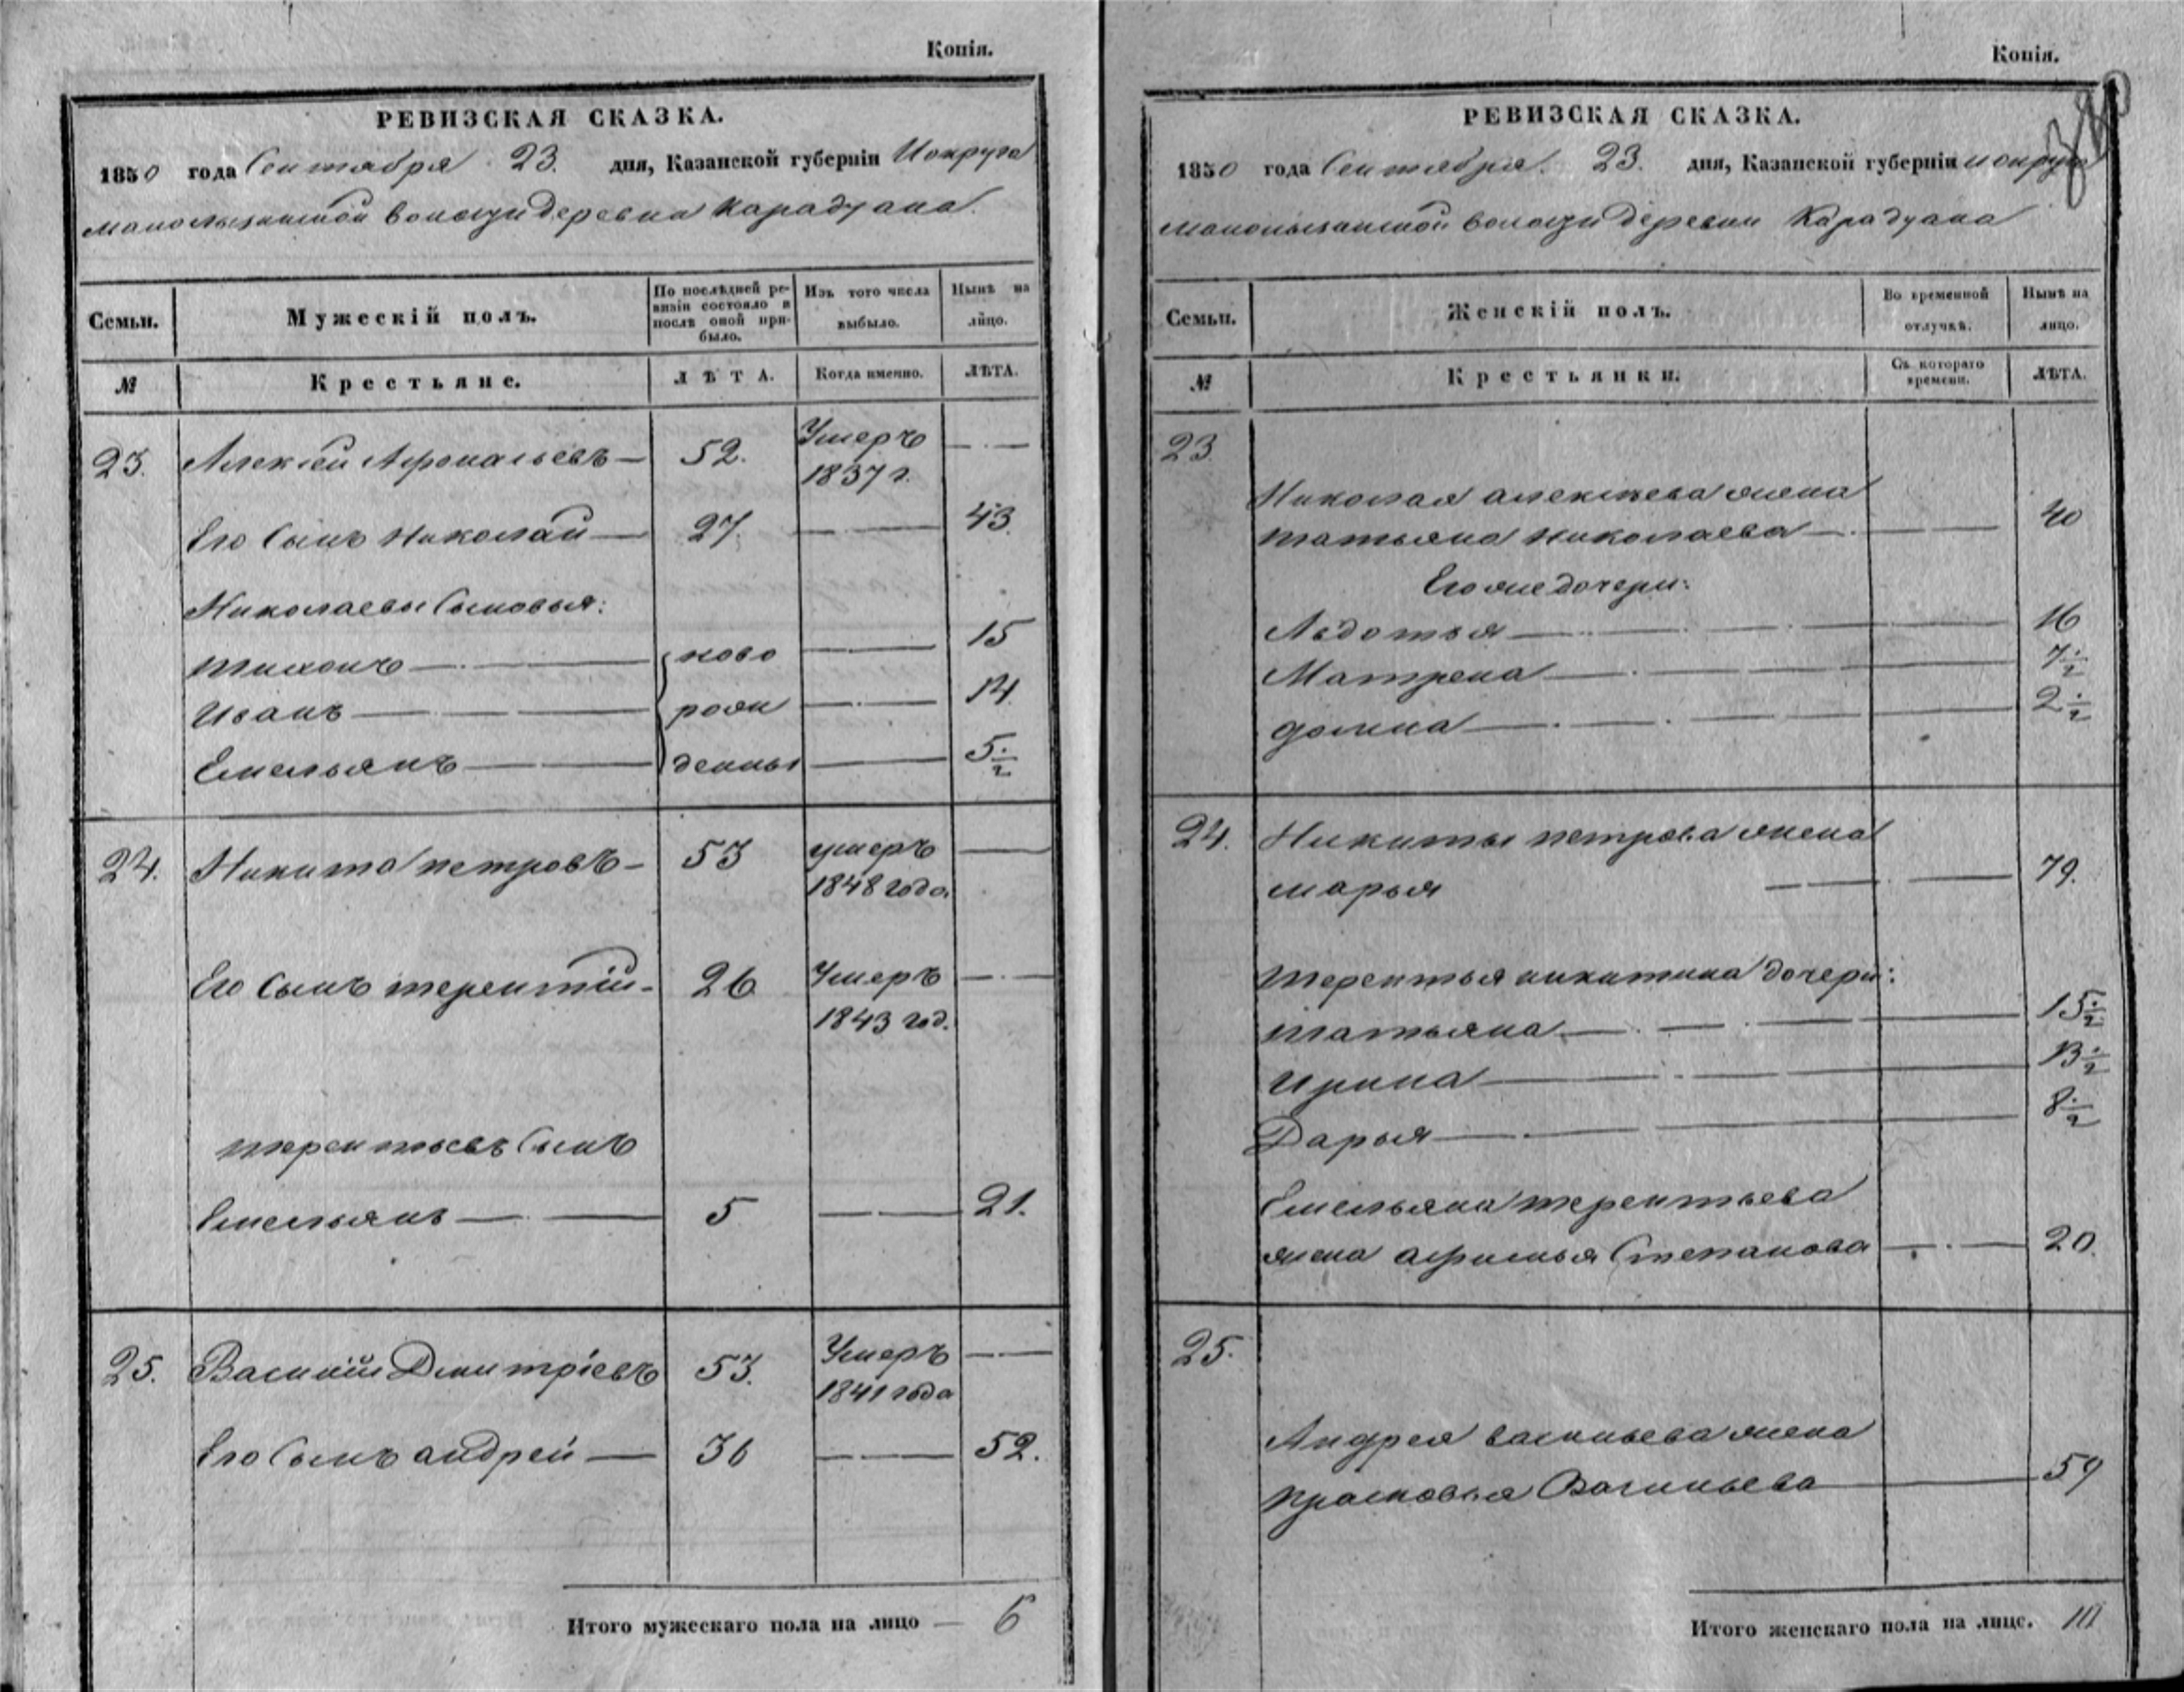 Копія.
РЕВИЗСКАЯ СКАЗКА.
1850 года Сентября 23. дня, Казанской губерніи И округа
волости деревна Карадуана.
Семьи.
Мужескій полъ.
По послѣдней ре-
визіи состояло и
послѣ оной при-
было.
Изъ того числа
выбыло.
Нынѣ на
лицо.
№
Крестьяне.
ЛѢТА.
Когда именно.
ЛѢТА.
23. Алексей Афонасьевъ — 52. Умеръ — · —
1837 г.
Его Сынъ Николай — 27. — · — 43.
Николаевы Сыновья:
Тихонъ — · — ново — · — 15
Иванъ — · — рож — · — 14.
Емельянъ — денны — 5 1/2
24. Никита петровъ — 53 умеръ —
1848 года.
Его Сынъ терентій — 26 Умеръ — · —
1843 год.
терентьевъ Сынъ
Емельянъ — · — 5 — 21.
25. Василій Дмитріевъ 53. Умеръ — · —
1841 года
Его Сынъ андрей — 36 — · — 52.
Итого мужескаго пола на лицо — 6
Копія.
РЕВИЗСКАЯ СКАЗКА.
1850 года Сентября. 23. дня, Казанской губерніи и округа
волости деревни Карадуана
Семьи.
Женскій полъ.
Во временной
отлучкѣ.
Нынѣ на
лицо.
№
Крестьянки.
Съ котораго
времени.
ЛѢТА.
23.
Николая алексѣева жена
татьяна николаева — · — 40
Его же дочери:
Авдотья — 16
Матрена — 7 1/2
домна — 2 1/2
24. Никиты петрова жена
марья — 79.
терентья никитина дочери:
татьяна — 15 1/2
Ирина — 13 1/2
Дарья — 8 1/2
Емельяна терентьева
жена афимья Степанова — · — 20.
25.
Андрея васильева жена
прасковья Васильева — 59
Итого женскаго пола на лицо. 10